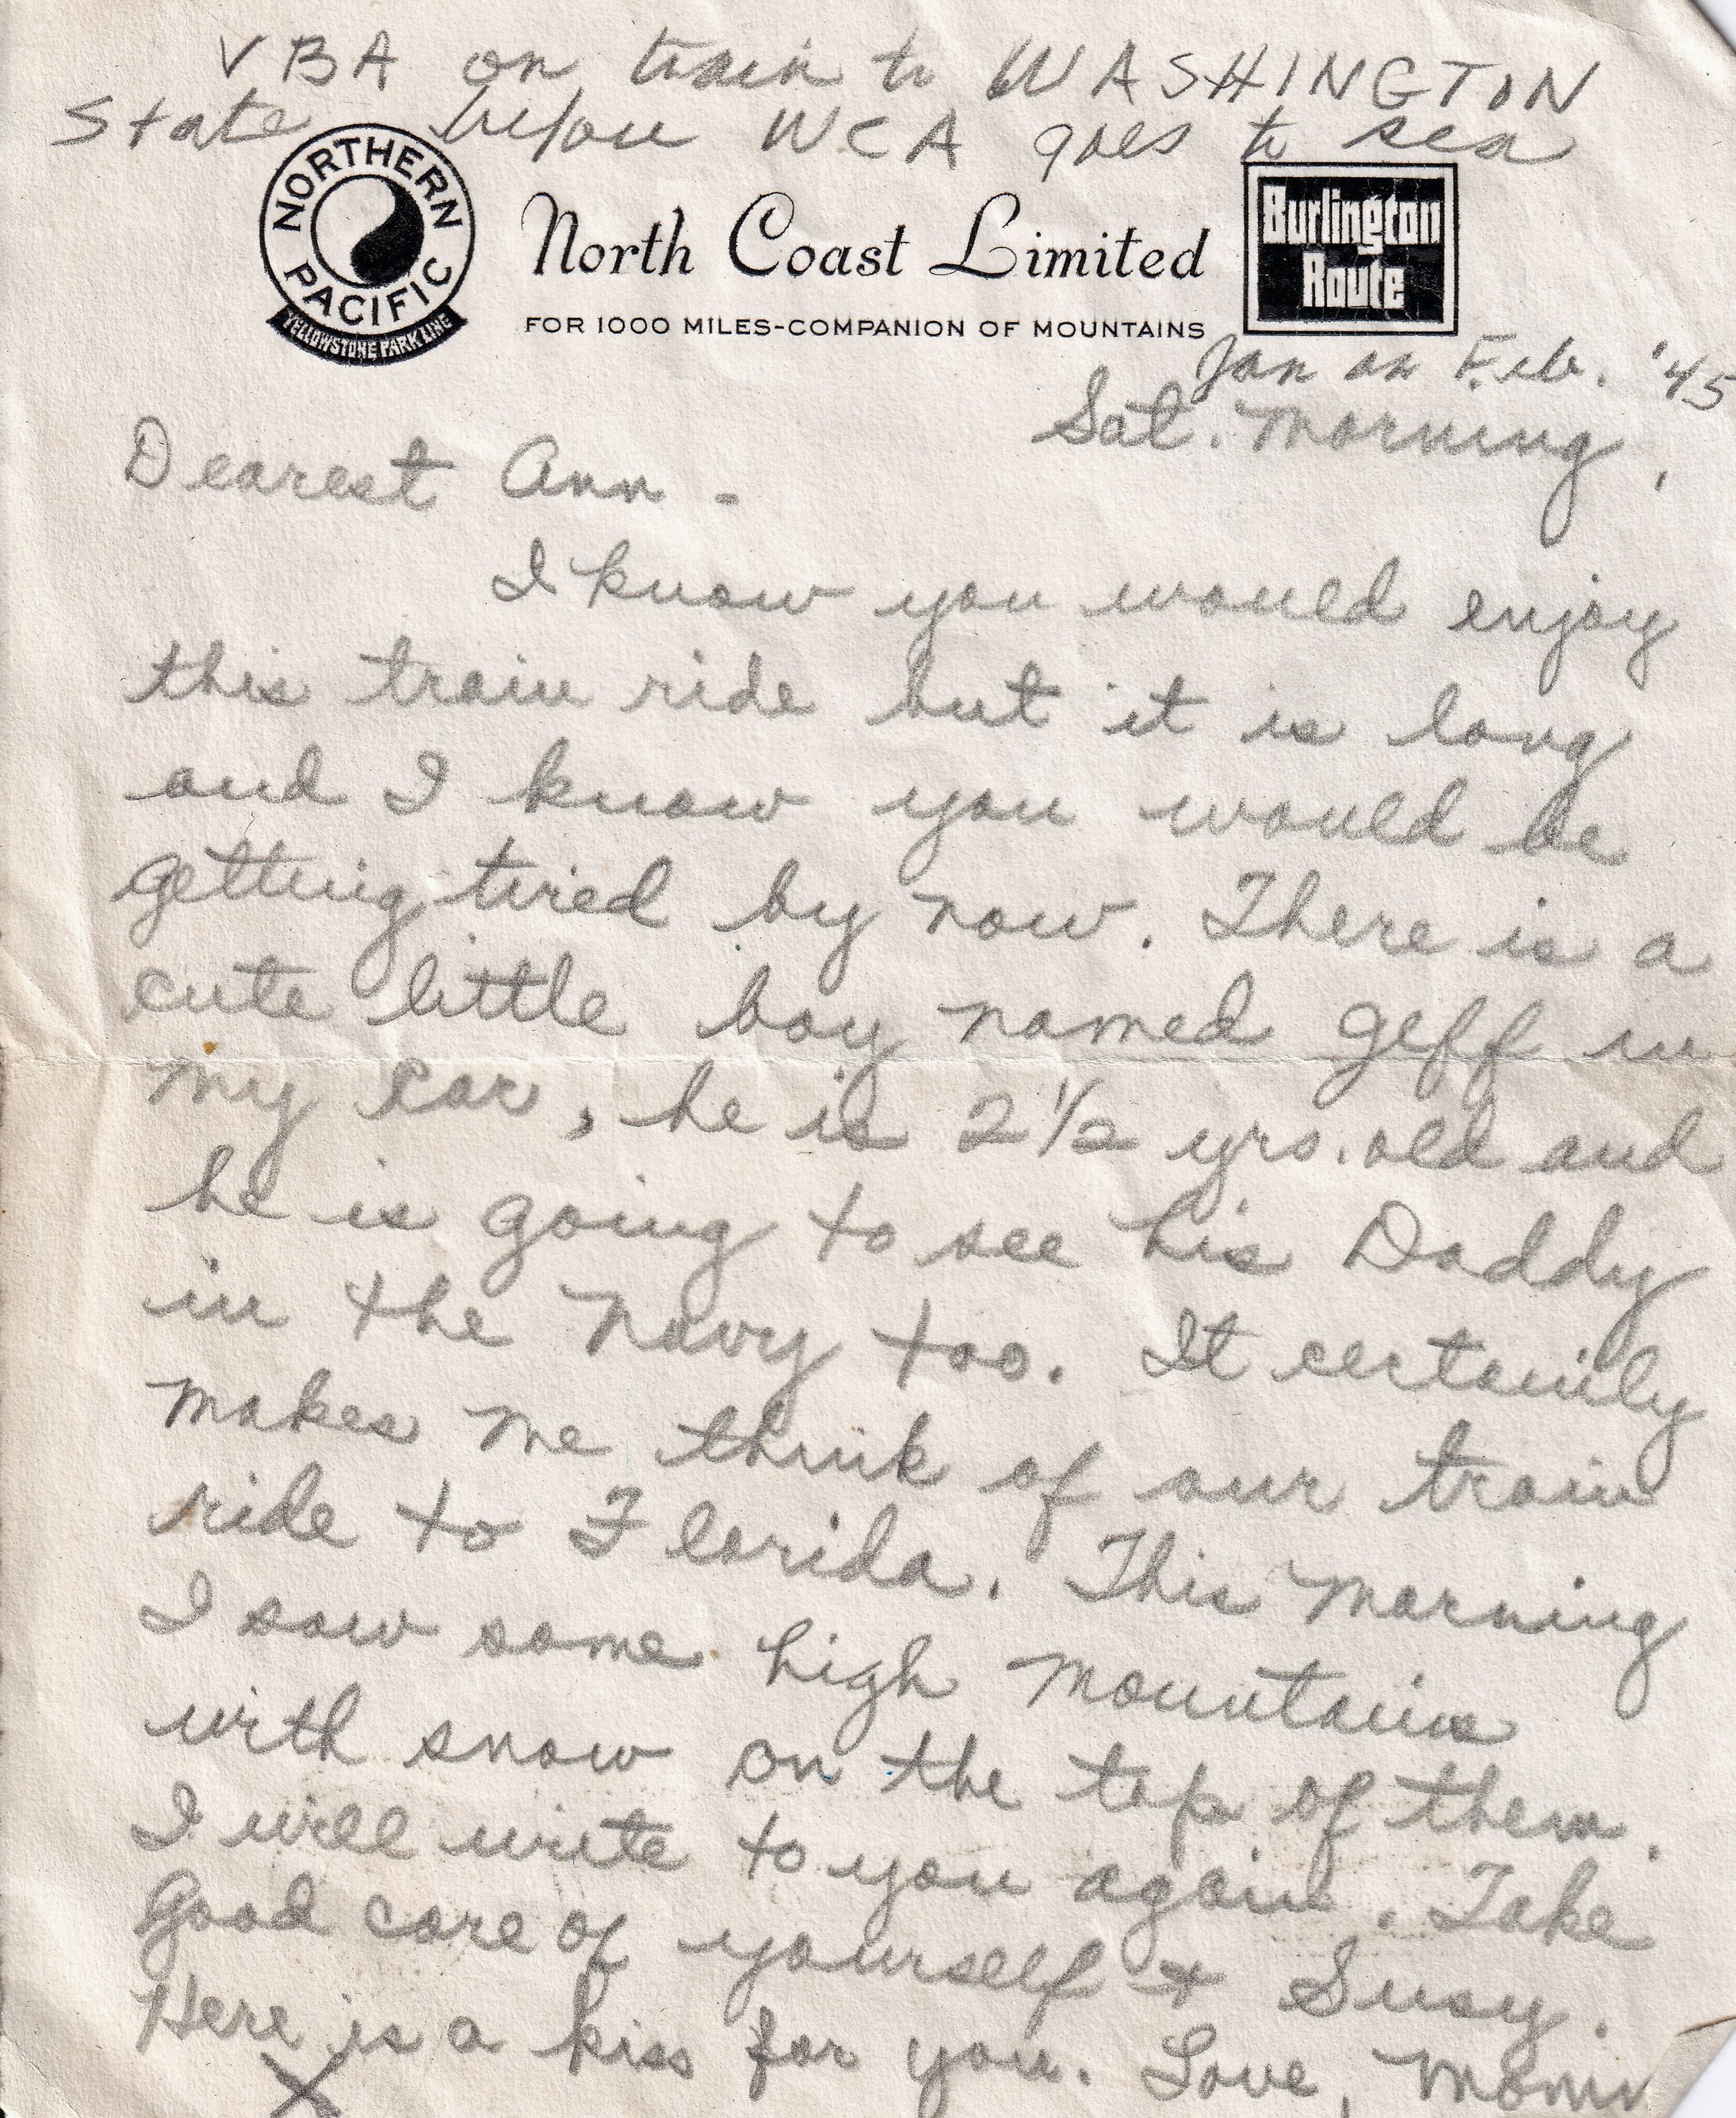 VBA on train to WASHINGTON
State before WCA goes to sea
NORTHERN PACIFIC
YELLOWSTONE PARK LINE
North Coast Limited
FOR 1000 MILES-COMPANION OF MOUNTAINS
Burlington
Route
Jan or Feb. '45
Sat. Morning,
Dearest Ann -
I know you would enjoy
this train ride but it is long
and I know you would be
getting tired by now. There is a
cute little boy named Geff in
my car, he is 2 1/2 yrs. old and
he is going to see his Daddy
in the Navy too. It certainly
makes me think of our train
ride to Florida. This morning
I saw some high mountains
with snow on the top of them.
I will write to you again. Take
Good care of yourself + Susy.
Here is a kiss for you. Love, Mom
X